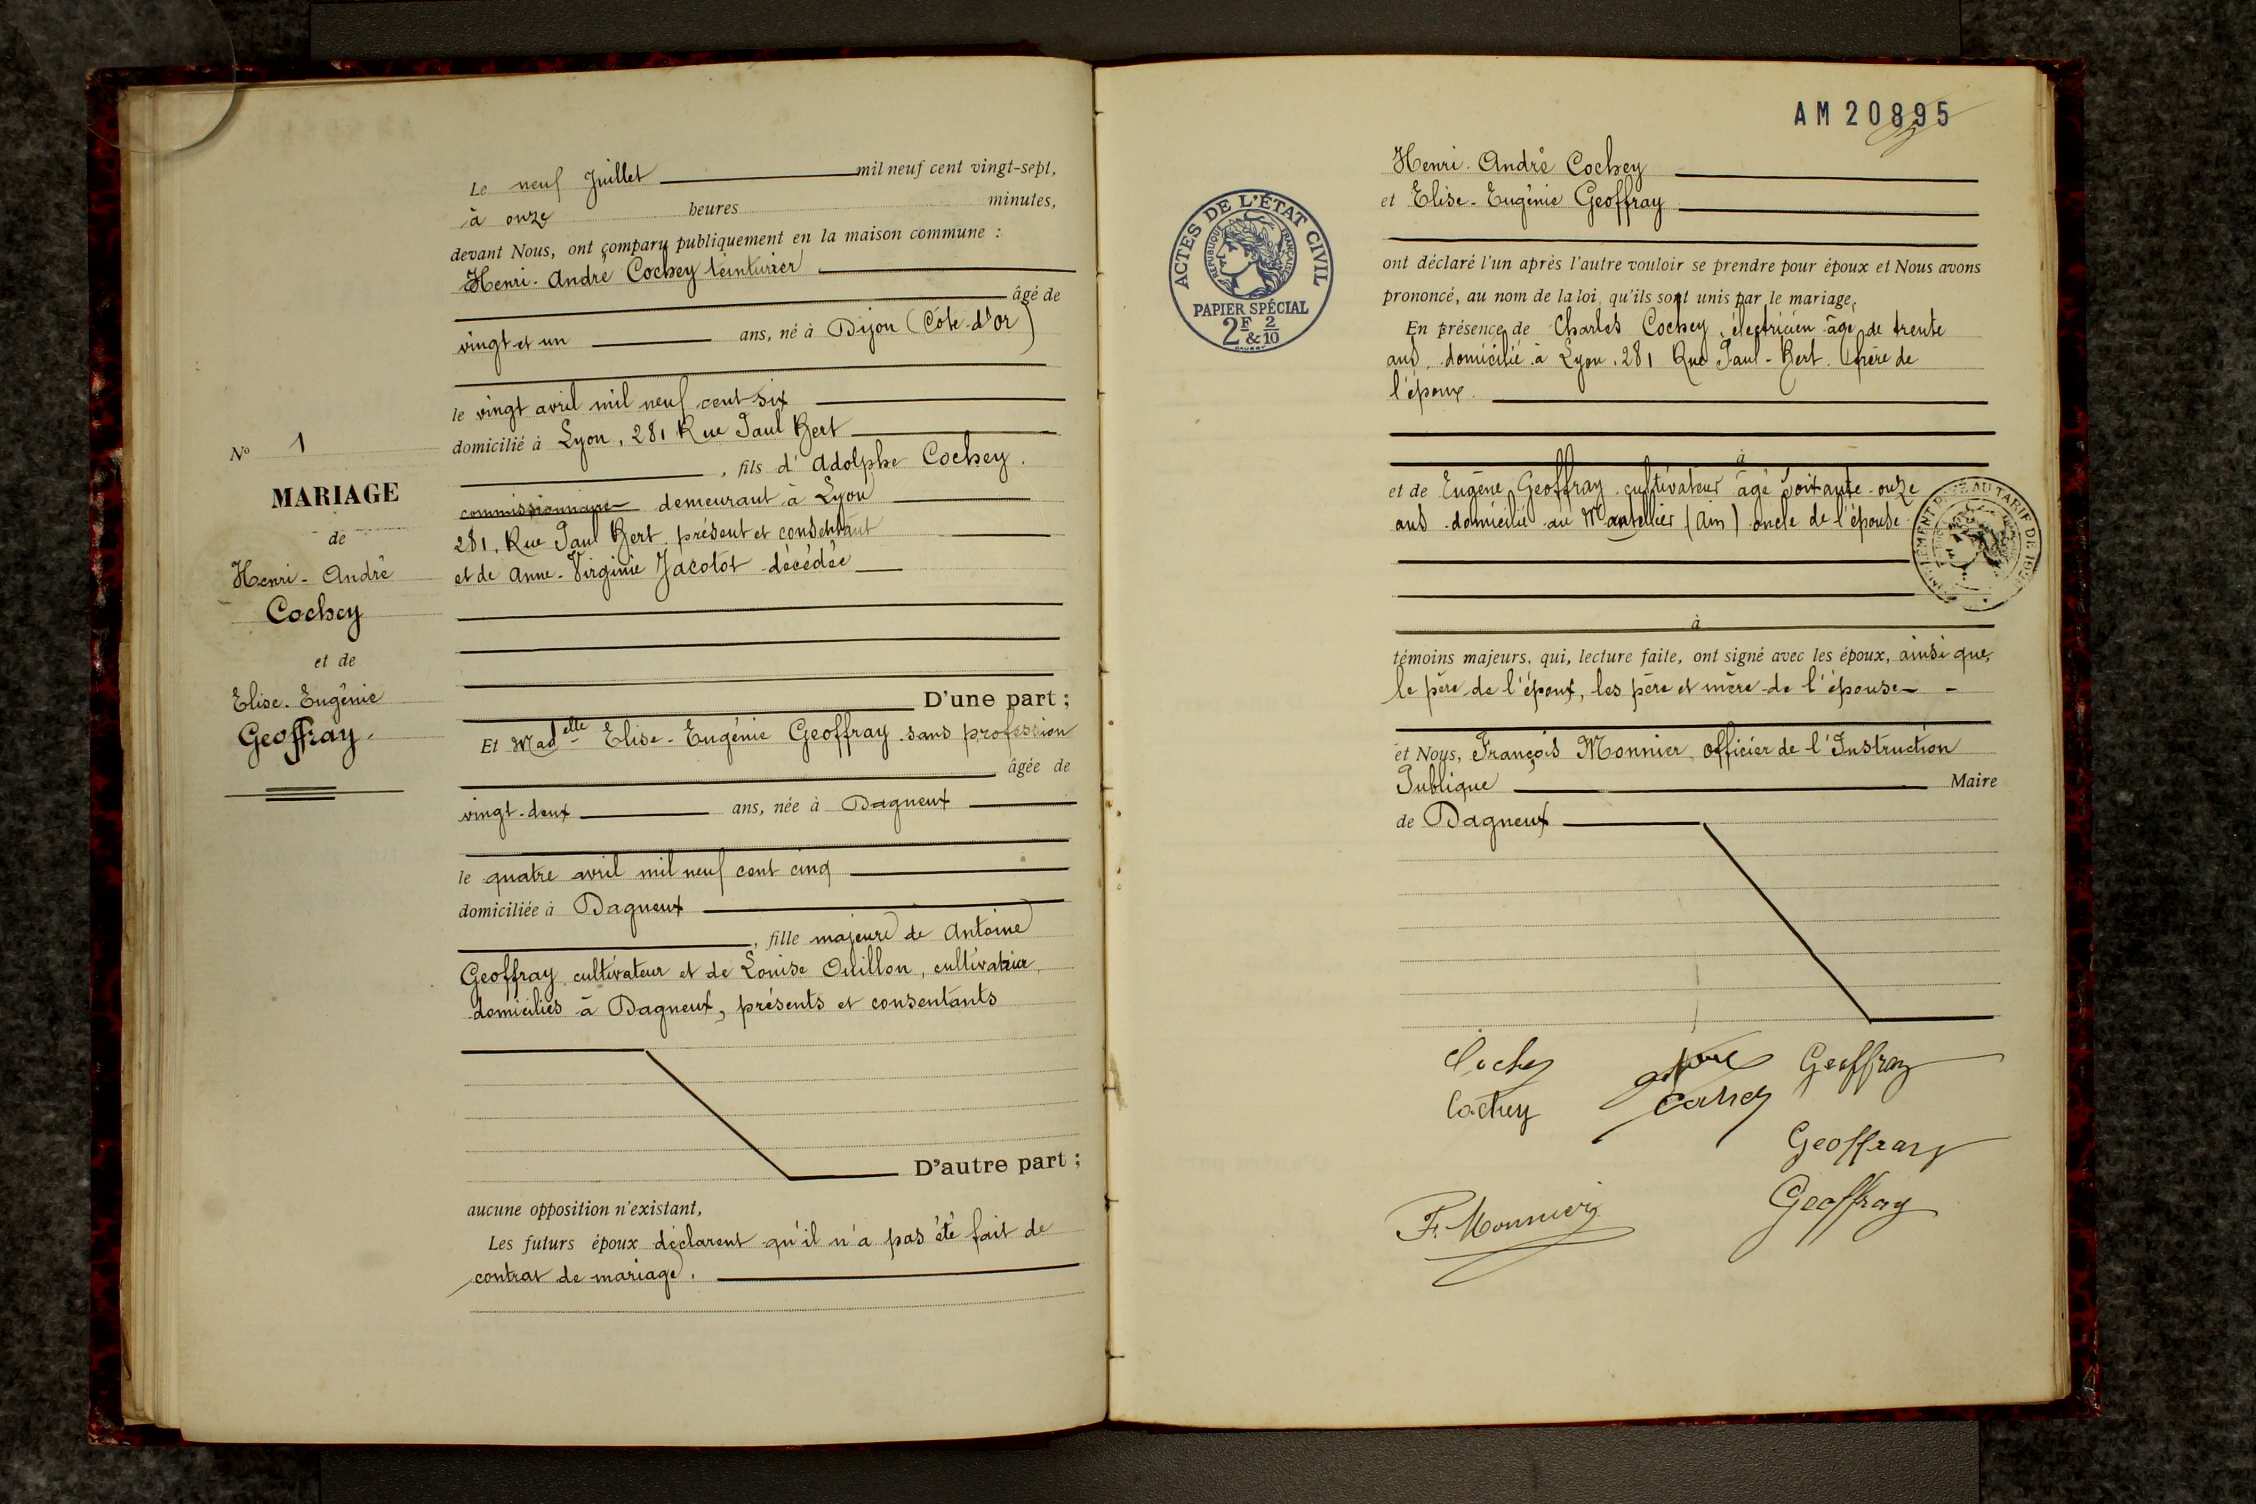 Le neuf Juillet mil neuf cent vingt-sept,
à onze heures minutes,
devant Nous, ont comparu publiquement en la maison commune :
Henri-André Cochey teinturier
âgé de
vingt et un ans, né à Dijon (Côte-d'or)
le vingt avril mil neuf cent six
domicilié à Lyon, 281 Rue Paul Bert
, fils d'Adolphe Cochey.
commissionnaire demeurant à Lyon
281, Rue Paul Bert, présent et consentant
et de Anne-Virginie Jacotot décédée
D'une part ;
Et Madelle Elise-Eugénie Geoffray sans profession
âgée de
vingt-deux ans, née à Dagneux
le quatre avril mil neuf cent cinq
domiciliée à Dagneux
, fille majeure de Antoine
Geoffray cultivateur et de Louise Ouillon, cultivatrice
domiciliés à Dagneux, présents et consentants
D'autre part ;
aucune opposition n'existant,
Les futurs époux déclarent qu'il n'a pas été fait de
contrat de mariage.
No 1
MARIAGE
de
Henri-André
Cochey
et de
Elise-Eugénie
Geoffray.
AM 20895
ACTES DE L'ÉTAT CIVIL
RÉPUBLIQUE FRANÇAISE
PAPIER SPÉCIAL
2F & 2/10
Henri-André Cochey
et Elise-Eugénie Geoffray
ont déclaré l'un après l'autre vouloir se prendre pour époux et Nous avons
prononcé, au nom de la loi, qu'ils sont unis par le mariage.
En présence de Charles Cochey, électricien âgé de trente
ans, domicilié à Lyon, 281 Rue Paul-Bert, frère de
l'époux.
à
et de Eugène Geoffray cultivateur âgé soixante-onze
ans domicilié au Montellier (Ain) oncle de l'épouse
à
témoins majeurs, qui, lecture faite, ont signé avec les époux, ainsi que,
le père de l'époux, les père et mère de l'épouse
et Nous, François Monnier, officier de l'Instruction
Publique Maire
de Dagneux
Cochey Geoffray
Cochey Cochey
Geoffray
F. Monnier Geoffray